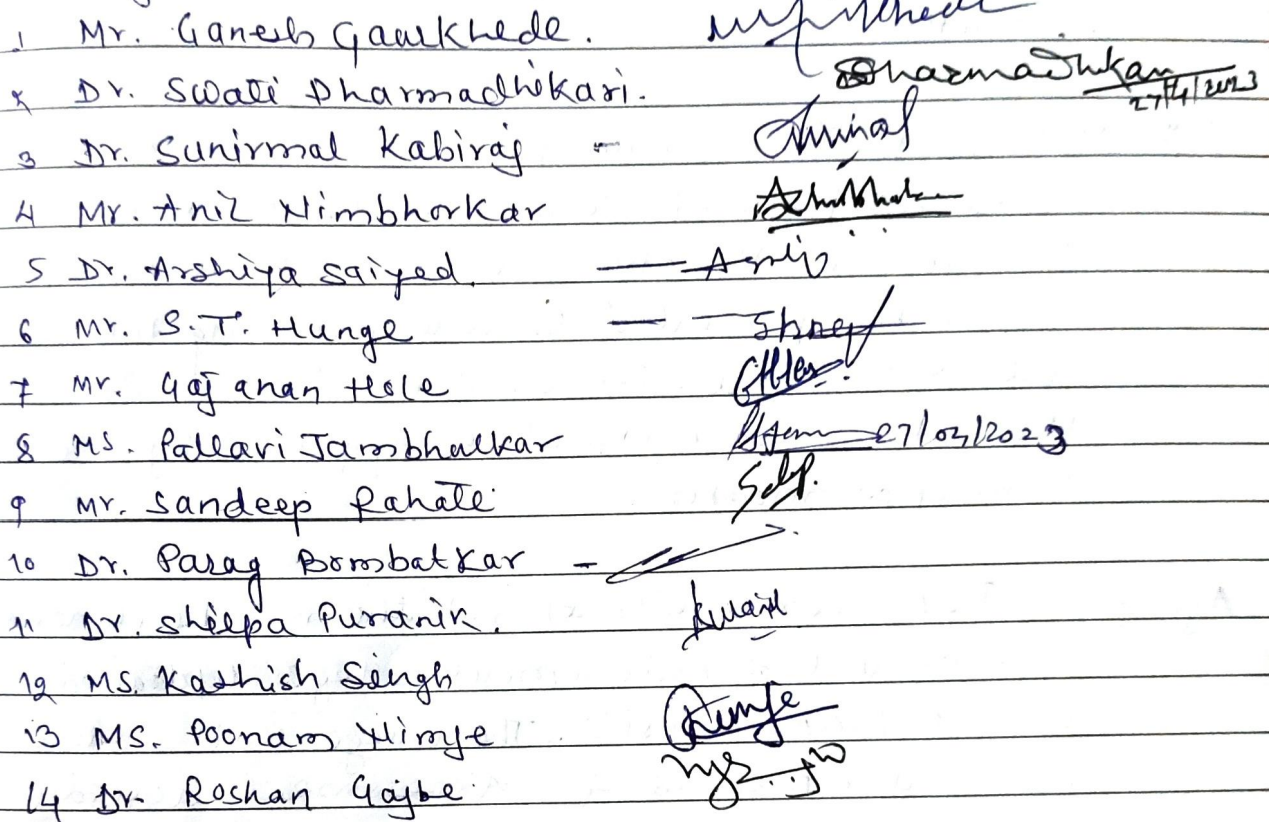 1 Mr. Ganesh Gaurkhede.
2 Dr. Swati Dharmadhikari. Dharmadhikari 27/4/2023
3 Dr. Sunirmal Kabiraj -
4 Mr. Anil Nimbhorkar
5 Dr. Arshiya Saiyed.
6 Mr. S.T. Hunge
7 Mr. Gajanan Hole
8 Ms. Pallavi Jambhulkar 27/04/2023
9 Mr. Sandeep Rahate
10 Dr. Parag Bombatkar -
11 Dr. Shilpa Puranik.
12 Ms. Kashish Singh
13 Ms. Poonam Nimje
14 Dr. Roshan Gajbe